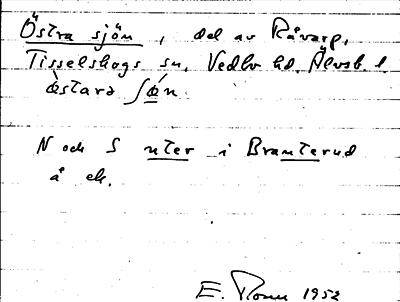 Östra sjön, del av Råvarp,
Tisselskogs sn, Vedbo hd. Älvsb. l.
östara ʃøn
N och S unter i Branterud
å ek.
E. 1952